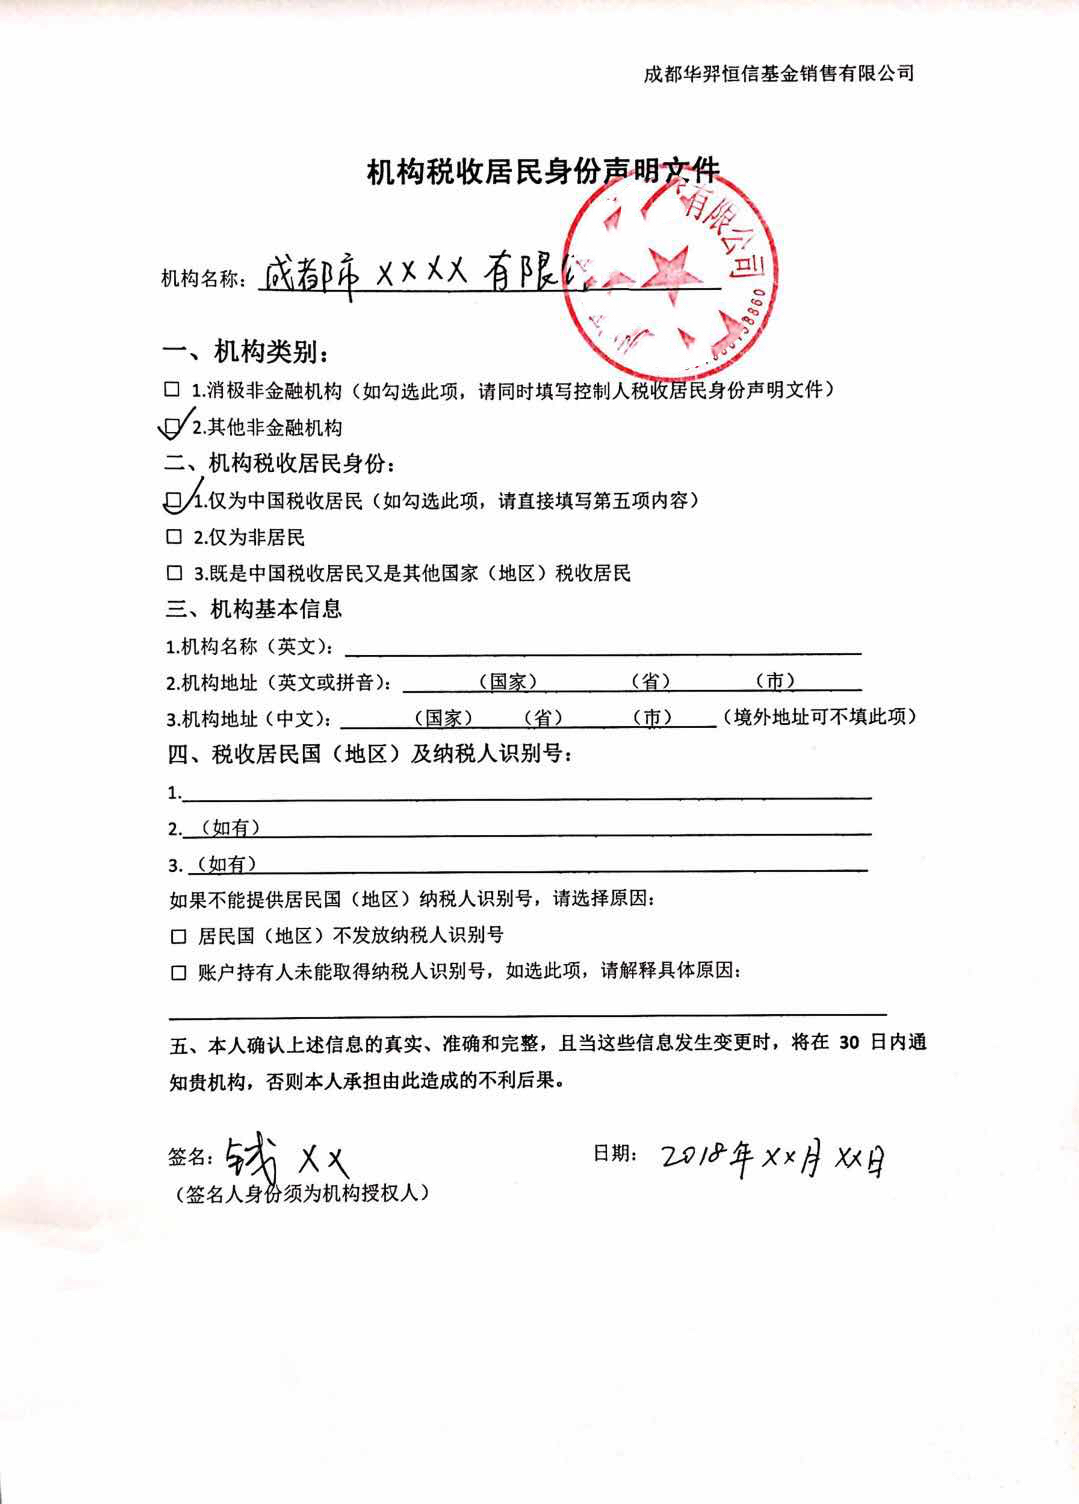 成都华羿恒信基金销售有限公司
机构税收居民身份声明文件
机构名称：成都市XXXX有限
有限公司
一、机构类别：
□ 1.消极非金融机构（如勾选此项，请同时填写控制人税收居民身份声明文件）
☑ 2.其他非金融机构
二、机构税收居民身份：
☑ 1.仅为中国税收居民（如勾选此项，请直接填写第五项内容）
□ 2.仅为非居民
□ 3.既是中国税收居民又是其他国家（地区）税收居民
三、机构基本信息
1.机构名称（英文）：
2.机构地址（英文或拼音）： （国家） （省） （市）
3.机构地址（中文）： （国家） （省） （市） （境外地址可不填此项）
四、税收居民国（地区）及纳税人识别号：
1.
2. （如有）
3. （如有）
如果不能提供居民国（地区）纳税人识别号，请选择原因：
□ 居民国（地区）不发放纳税人识别号
□ 账户持有人未能取得纳税人识别号，如选此项，请解释具体原因：
五、本人确认上述信息的真实、准确和完整，且当这些信息发生变更时，将在 30 日内通
知贵机构，否则本人承担由此造成的不利后果。
签名：钱XX 日期： 2018年XX月XX日
（签名人身份须为机构授权人）